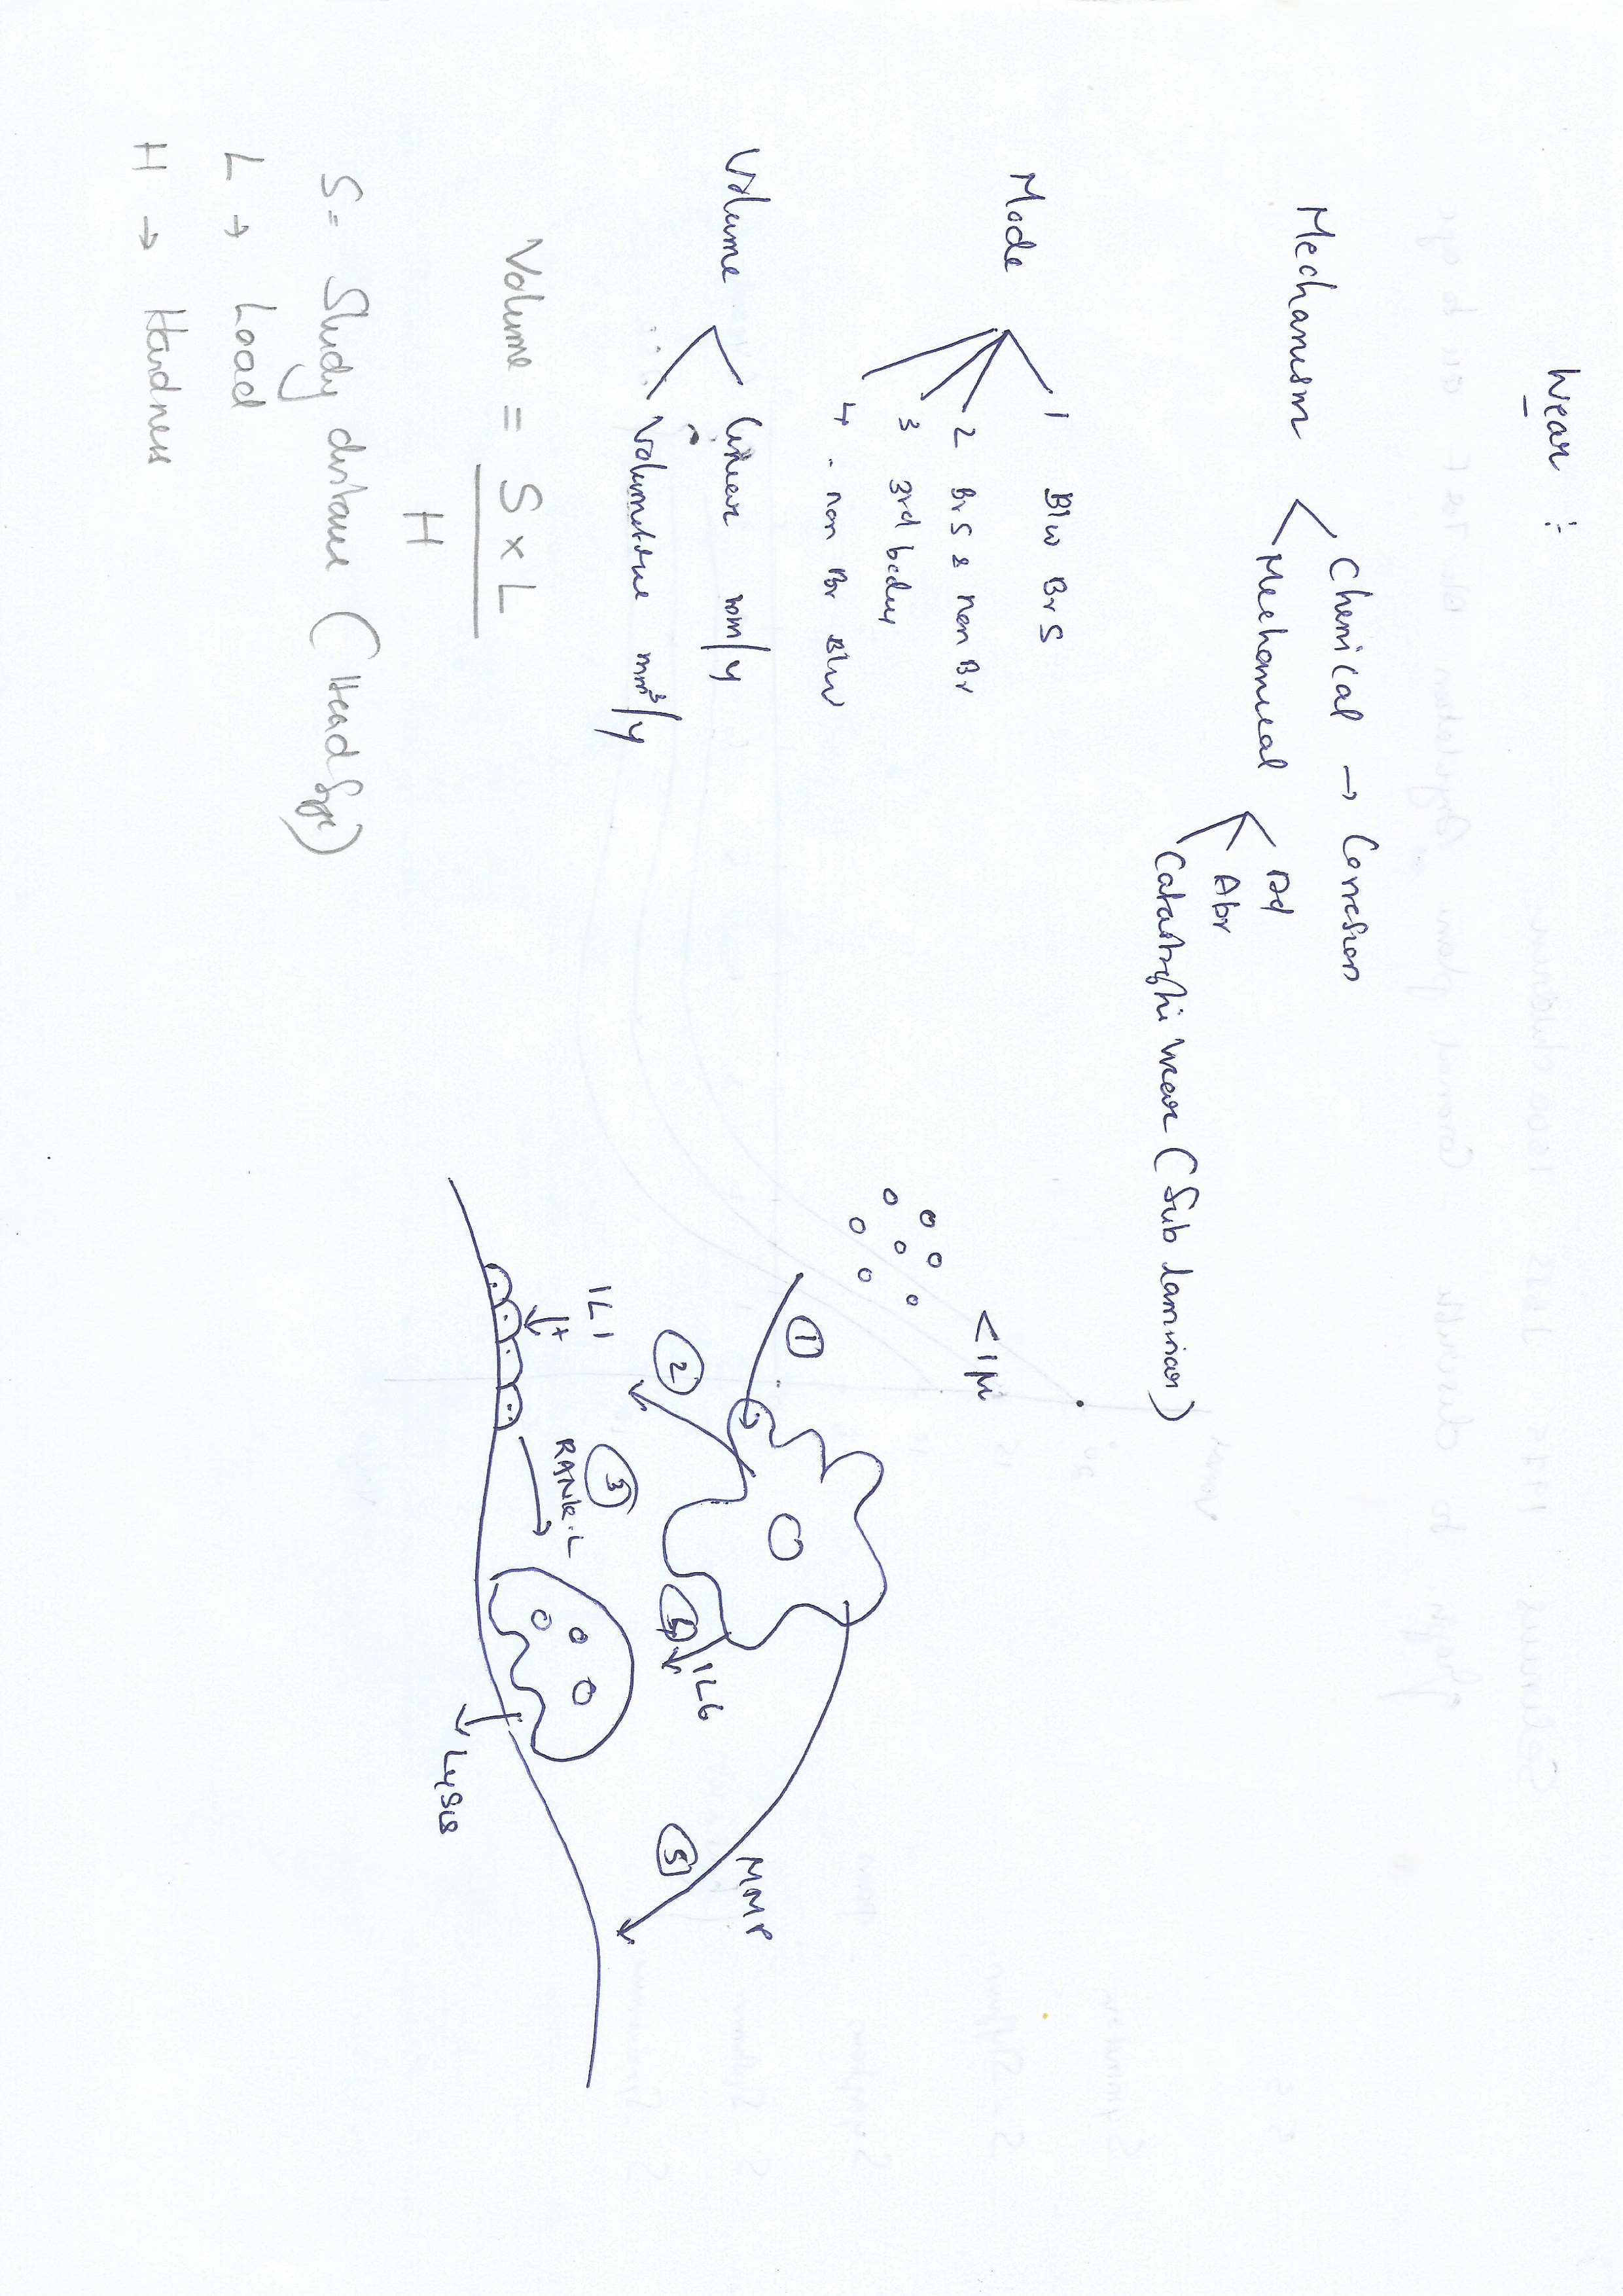 Wear :
Mechanism
Chemical → Corrosion
Mechanical
Ad
Abr
Catastrophi wear (Sub laminar)
Mode
1 Btw Br S
2 Br S & non Br
3 3rd body
4 - non Br Btw
Volume
Linear mm/y
Volumetric mm³/y
Volume = S × L
H
S = Slidg distance (Head Sze)
L → Load
H → Hardness
<1M
1
2
IL1
+
3
RANK-L
4
IL6
5
MMP
Lysis